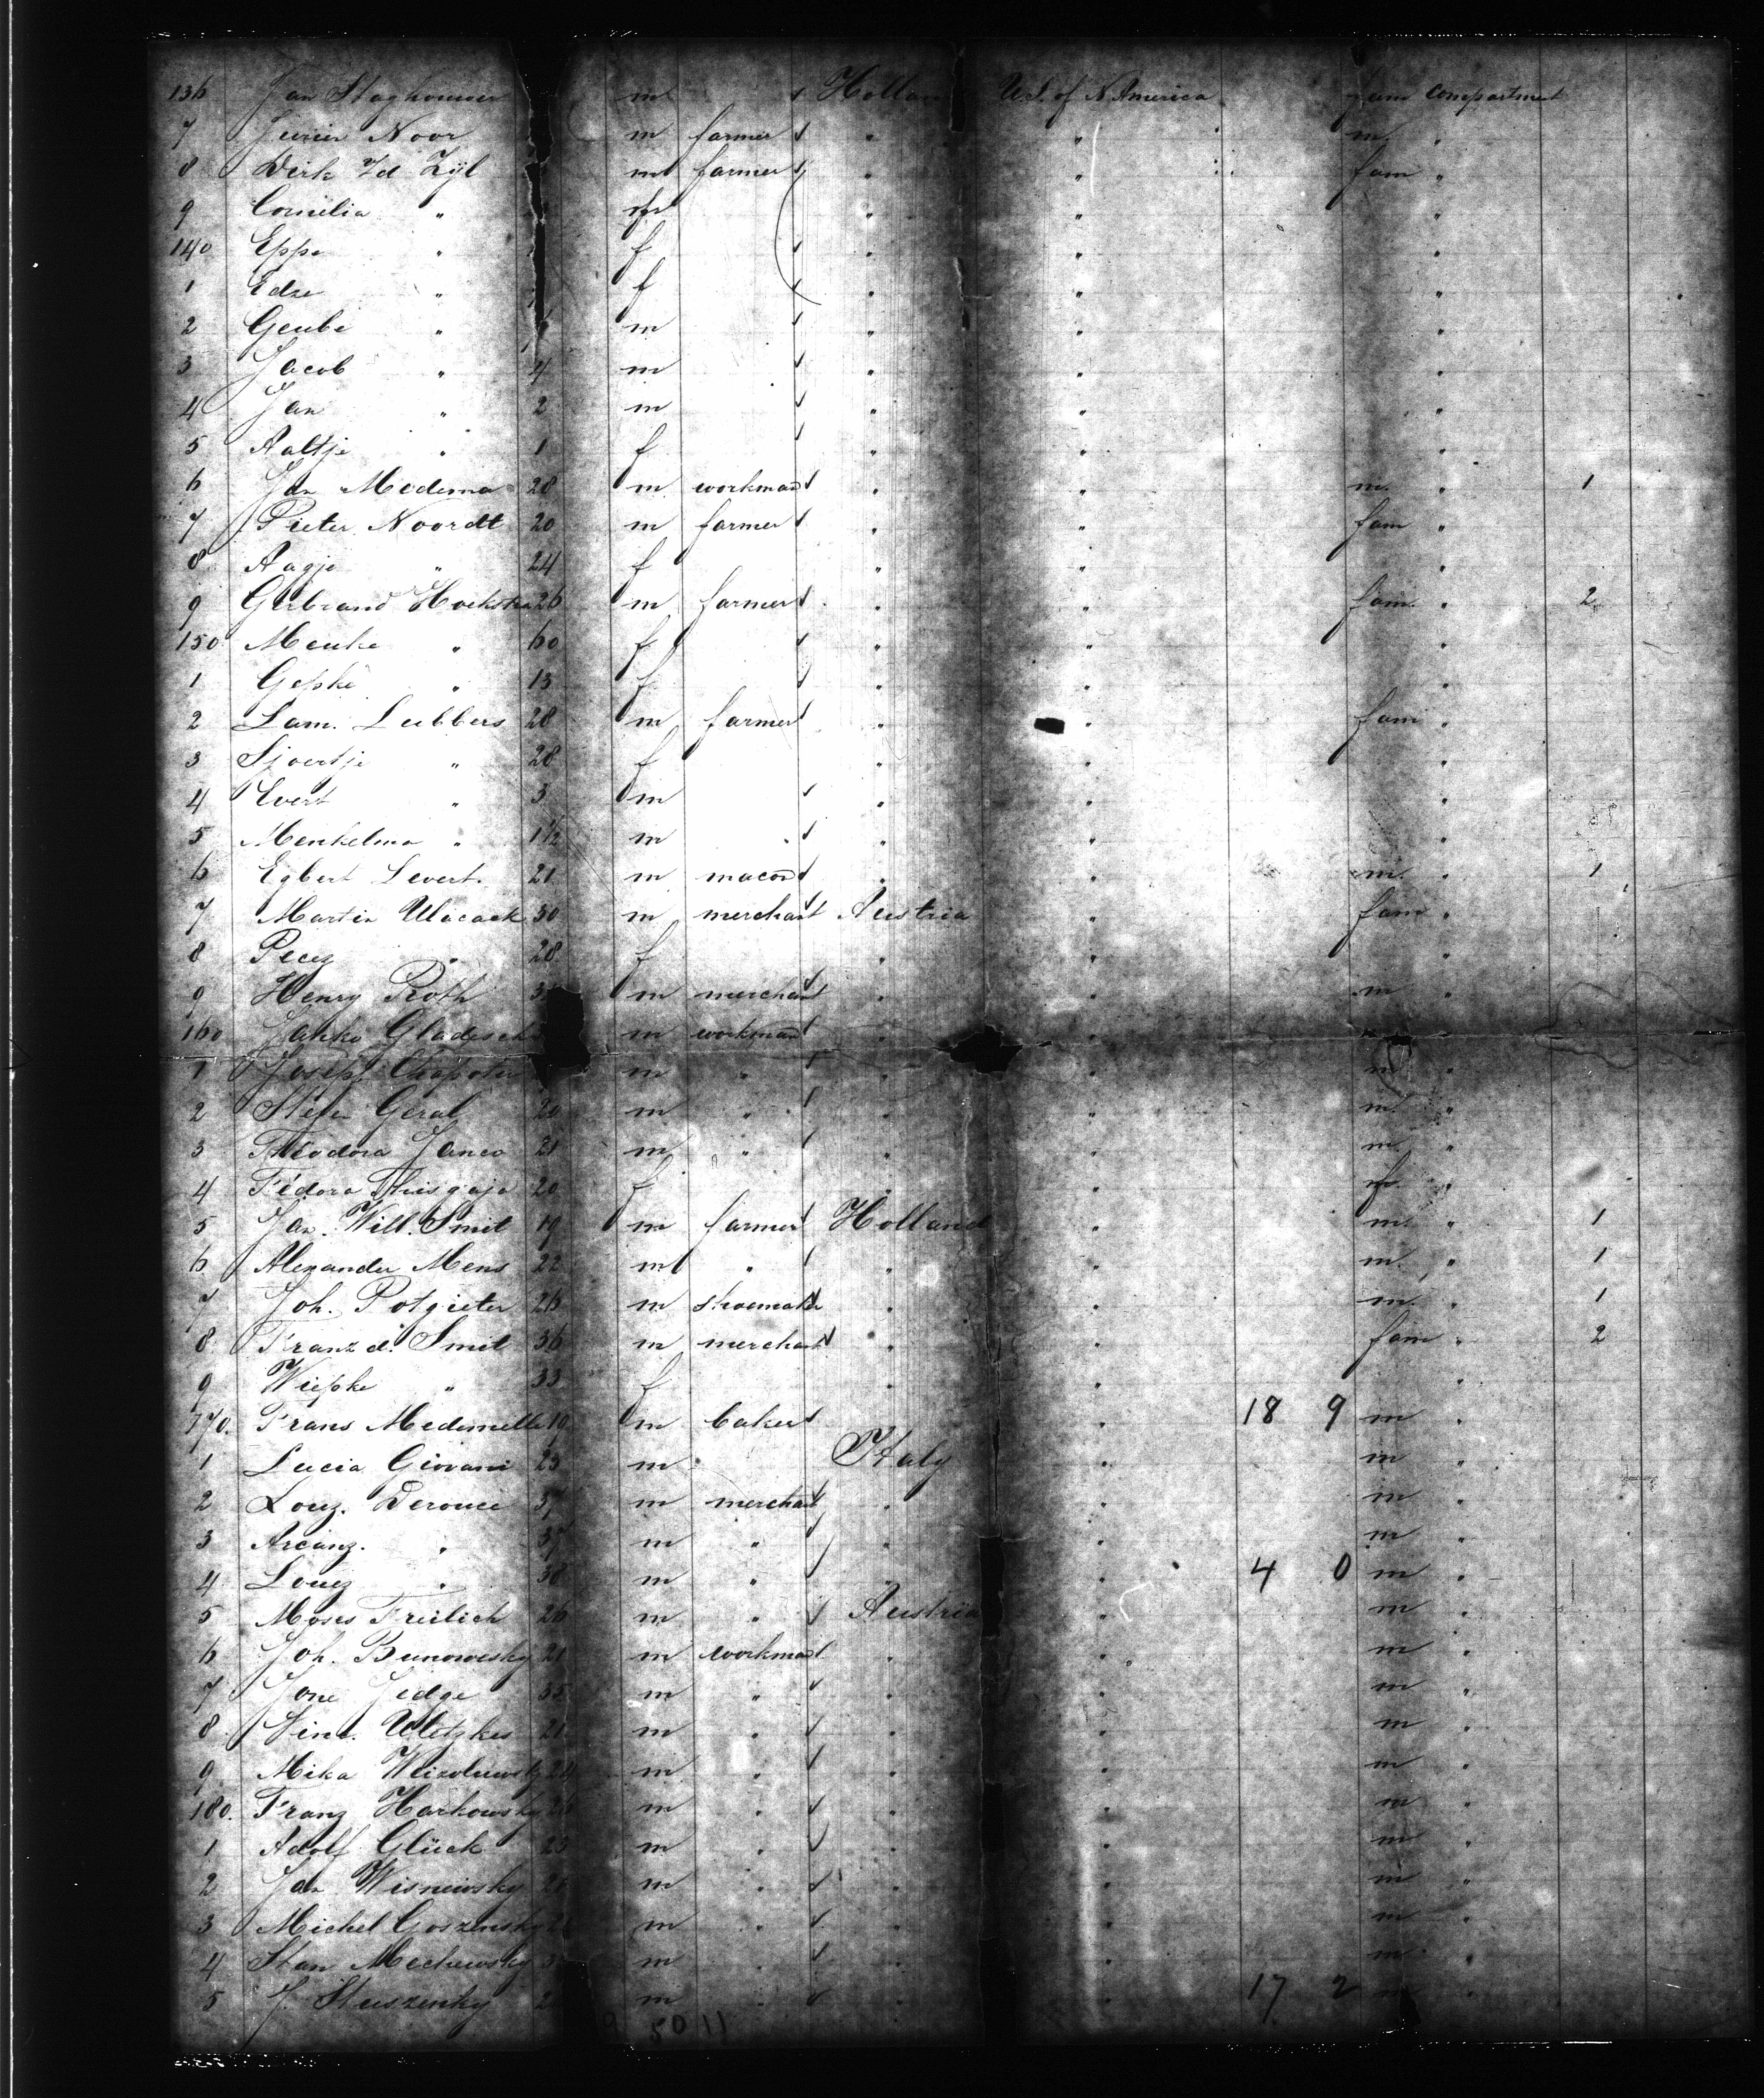 136 Jan Staghouwer m Holland U.S. of N. America fam compartment
7 Jurien Noor m farmer " " m "
8 Dirk v/d Zijl m farmer " " fam "
9 Cornelia " " " "
140 Eppe " f " " "
1 Edze " f " " "
2 Geube " m " " "
3 Jacob " 4 m " " "
4 Jan " 2 m " " "
5 Aaltje " 1 f " " "
6 Jan Medema 28 m workman " " m. " 1
7 Pieter Noordt 20 m farmer " " fam "
8 Aagje " 24 f " " "
9 Gerbrand Hoekstra 26 m farmer " " fam. " 2
150 Menke " 60 f " " "
1 Gepke " 13 f " " "
2 Lam. Lubbers 28 m farmer " " fam "
3 Sjoertje " 28 f " " "
4 Evert " 3 m " " "
5 Menkelma " 1 1/2 m " " "
6 Egbert Severt. 21 m macon " " m. " 1
7 Martin Ulacack 30 m merchant Austria " fam "
8 Pecez " 28 f " " "
9 Henry Roth m merchant " " m "
160 Janko m workman " "
1 Joseph m " " " m "
2 Stefan Geral 20 m " " " m. "
3 Theodora Janco 21 m " " " m. "
4 Fedora 20 f " " "
5 Jan Will. Smit 19 m farmer Holland " m. " 1
6 Alexander Mens 22 m " " " m. " 1
7 Joh. Potgieter 26 m shoemaker " " m. " 1
8 Franz d. Smit 36 m merchant " " fam " 2
9 Wiepke " 33 f " " "
170. Frans 19 m baker " 18 9 m "
1 Lucia Giovani 23 m Italy " m "
2 Louz. Derouce 37 m merchant " " m "
3 Arcanz. " 37 m " " " m "
4 Louz " 38 m " " " 4 0 m "
5 Moses Freilich 26 m " Austria " m "
6 Joh. Bunowesky 21 m workman " " m "
7 Jone Jedge 35 m " " " m "
8 Vinc. Uletzkes 21 m " " " m "
9 Mika 24 m " " " m "
180. Franz Harkowsky 26 m " " " m "
1 Adolf Glück 23 m " " " m "
2 Jan Wisniewsky m " " " m "
3 Michel Goszensky m " " " m "
4 Stan Mechewsky m " " " m "
5 J. Stuszenky m " " " 17 2 m "
50 11